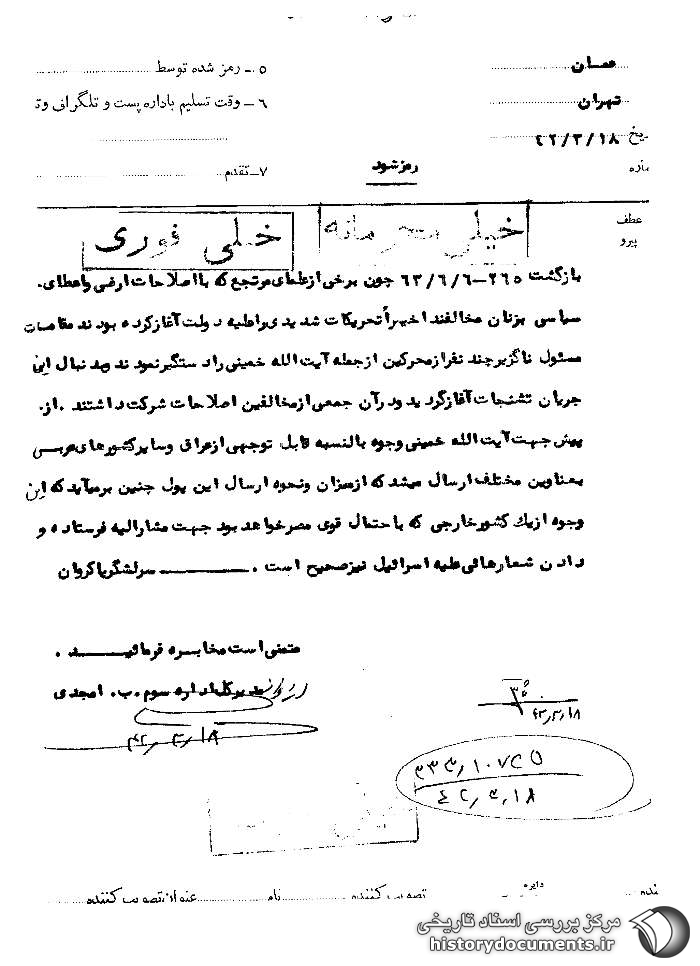 عمان
۵ ـ رمز شده توسط
تهران
۶ ـ وقت تسلیم باداره پست و تلگرافی وت
یخ ۴۲/۳/۱۸
ماره
رمز شود
۷ـ تقدم
عطف
پیرو
خیلی محرمانه
خیلی فوری
بازگشت ۲۶۵-۶۳/۶/۶ چون برخی از علمای مرتجع که با اصلاحات ارضی واعطای .
سیاسی بزنان مخالفند اخیراً تحریکات شدیدی برعلیه دولت آغاز کرده بودند مقامات
مسئول ناگزیر چند نفر از محرکین ازجمله آیت الله خمینی را دستگیر نمودند وبدنبال این
جریان تشنجات آغاز گردید ودرآن جمعی از مخالفین اصلاحات شرکت داشتند . از .
پیش جهت آیت الله خمینی وجوه بالنسبه قابل توجهی از عراق وسایر کشورهای عربی
بعناوین مختلف ارسال میشد که از میزان ونحوه ارسال این پول چنین برمیآید که این
وجوه از یک کشور خارجی که باحتمال قوی مصر خواهد بود جهت مشارالیه فرستاده و
دادن شعارهائی علیه اسرائیل نیز صحیح است . سرلشگر پاکروان
متمنی است مخابره فرمائیــــد .
مدیرکل اداره سوم . ب . امجدی
۴۲٫۳٫۱۸
۴۲٫۳٫۱۸
۳۳۳٫۱۰۷۲۵
۴۲٫۳٫۱۸
نده
دایره
تصویب کننده
نام
عنوان تصویب کننده
مرکز بررسی اسناد تاریخی
historydocuments.ir